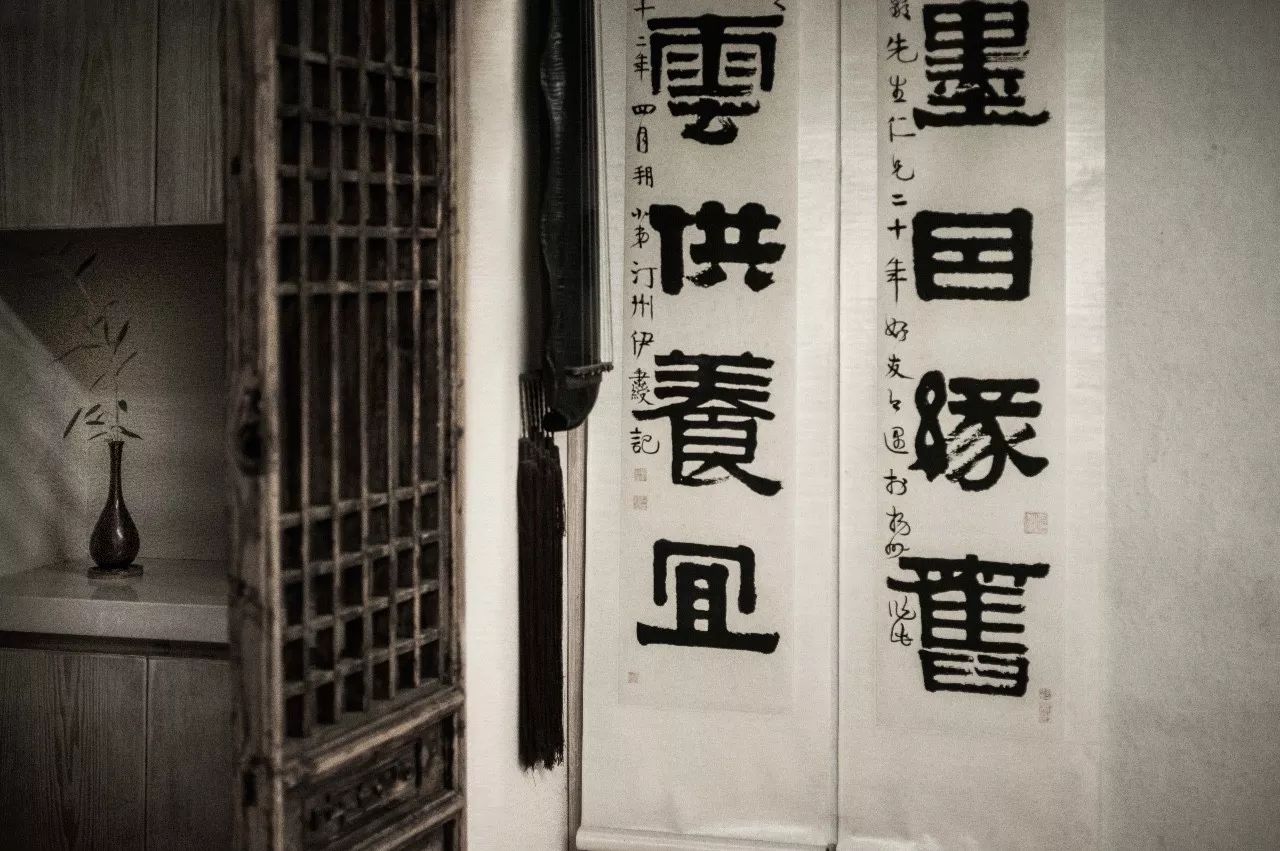 墨囙緣舊
先生仁兄二十年好友
雲供養宜
十二年四月朔小弟汀州伊秉綬記